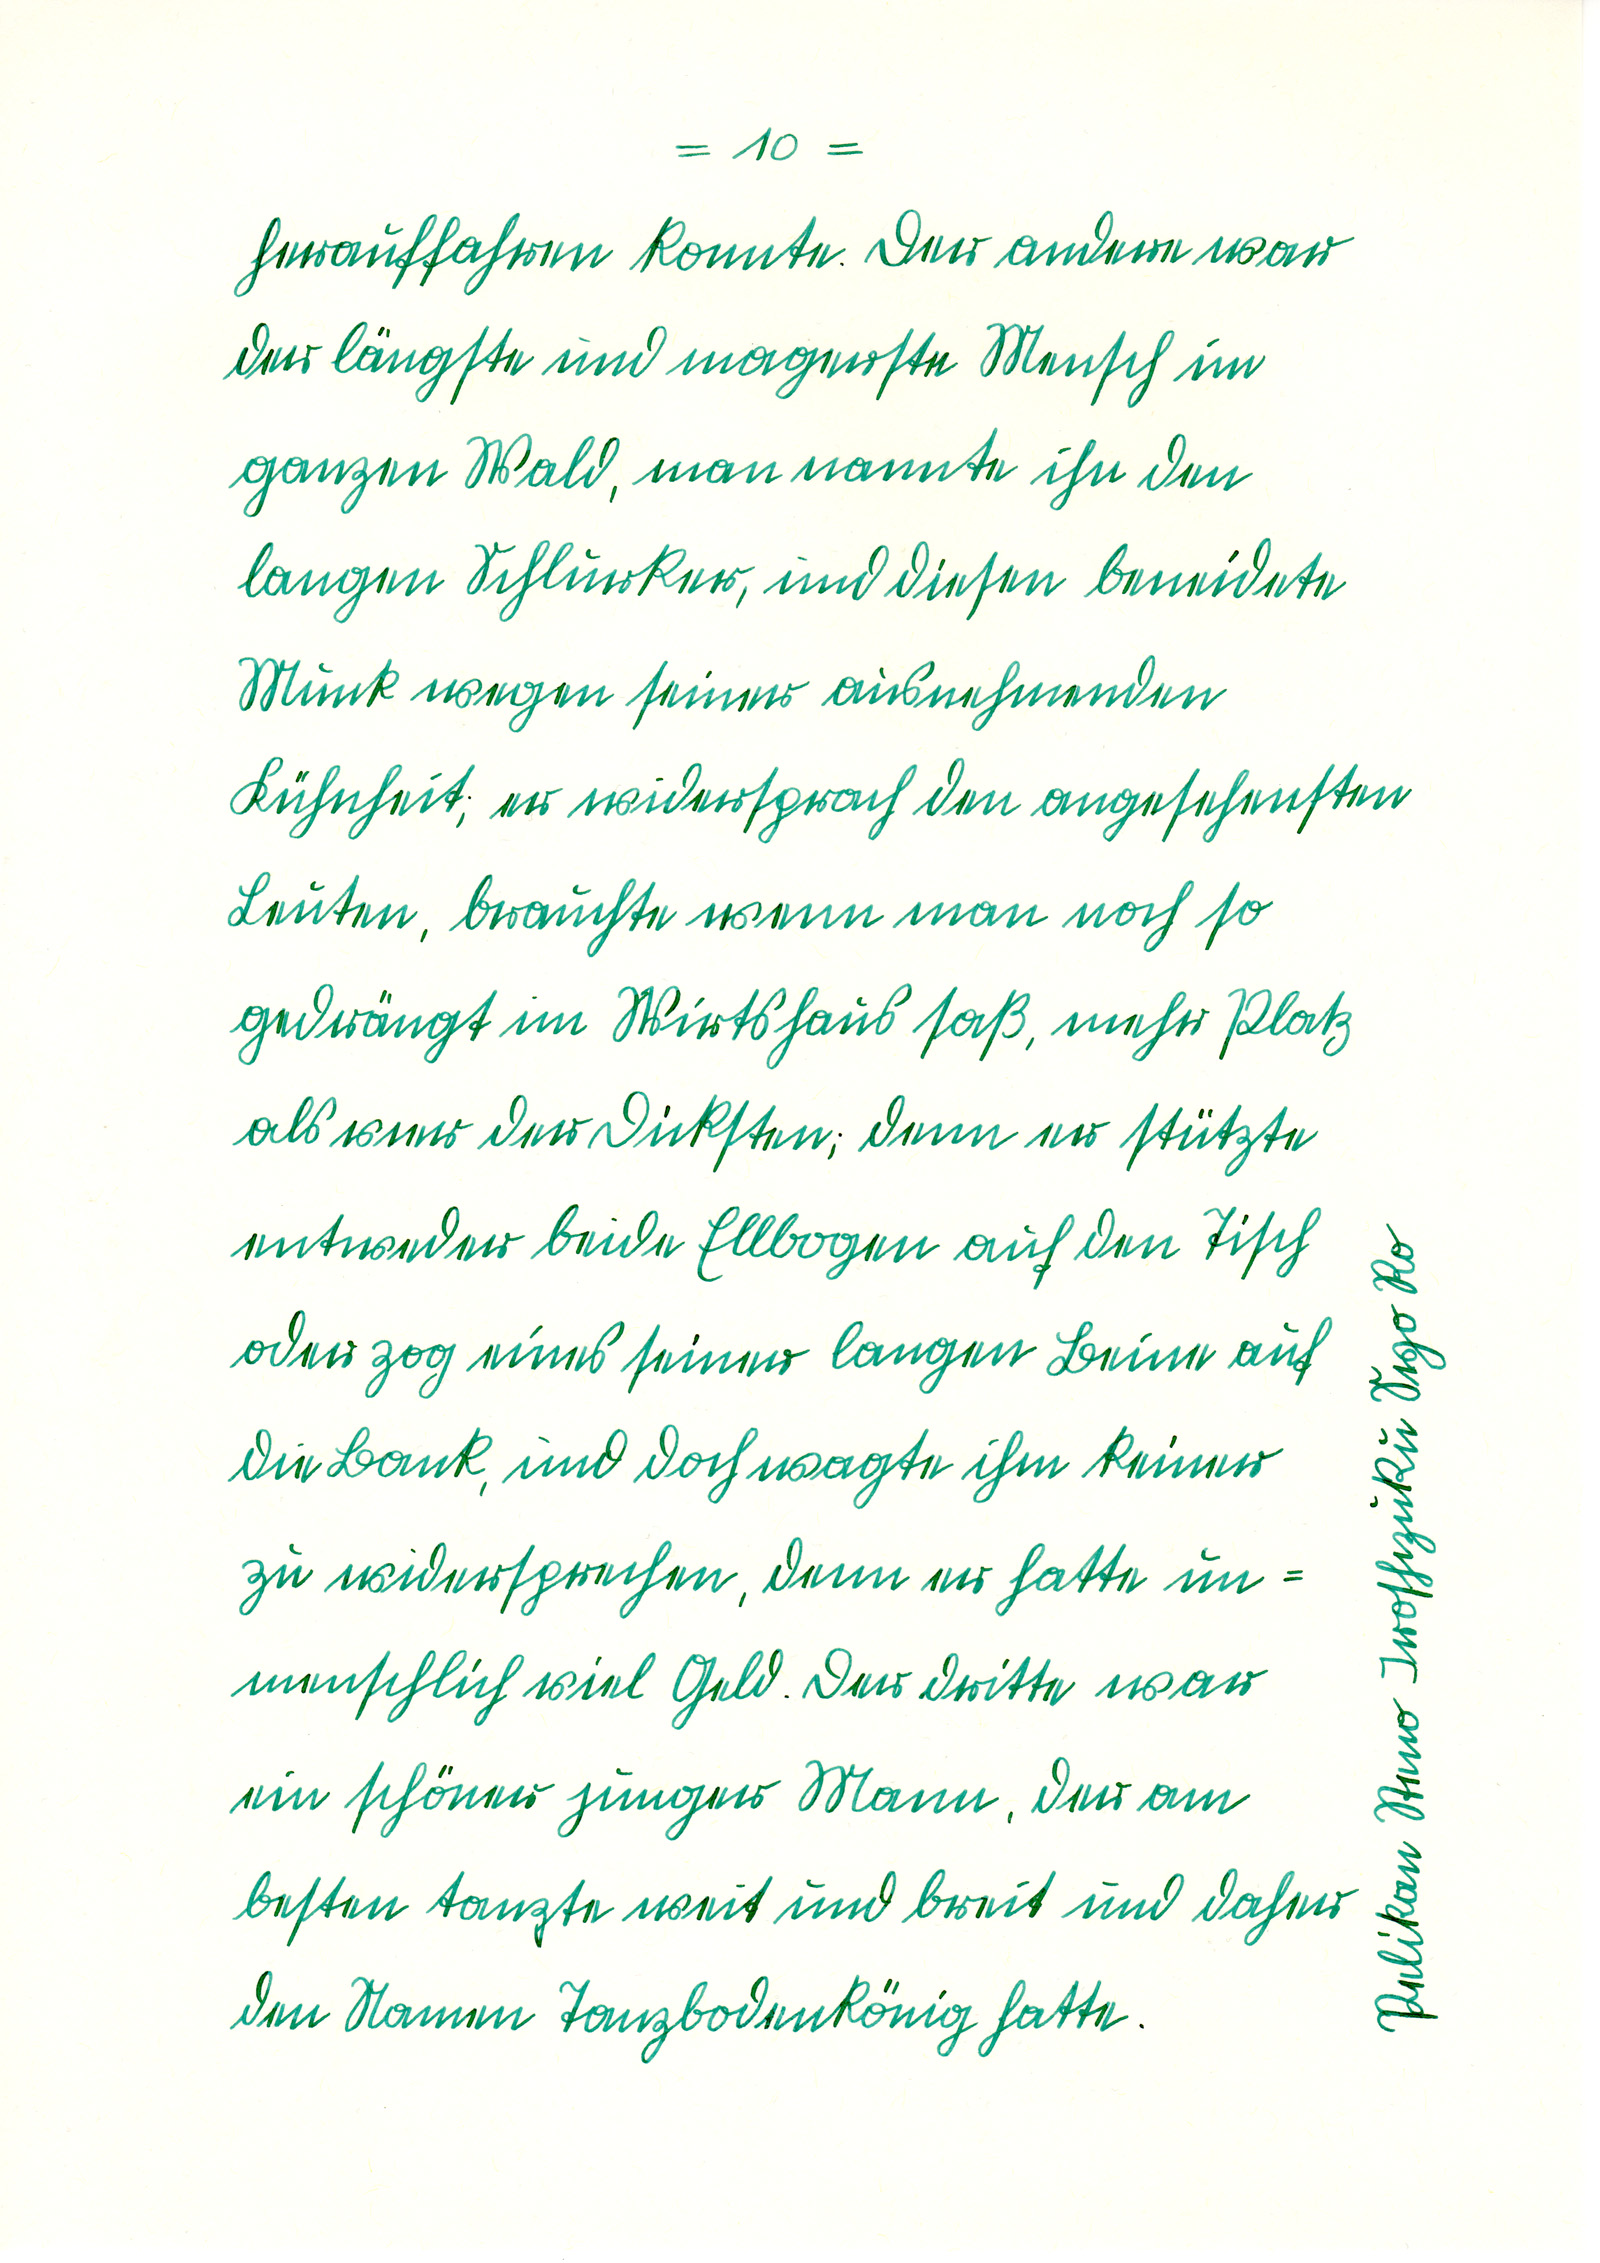 = 10 =
herauffahren konnte. Der andere war
der längste und magerste Mensch im
ganzen Wald, man nannte ihn den
langen Schlurker, und diesen beneidete
Munk wegen seiner ausnehmenden
Kühnheit; er widersprach den angesehensten
Leuten, brauchte wenn man noch so
gedrängt im Wirtshaus saß, mehr Platz
als vier der Dicksten; denn er stützte
entweder beide Ellbogen auf den Tisch
oder zog eines seiner langen Beine auf
die Bank, und doch wagte ihm keiner
zu widersprechen, denn er hatte un =
menschlich viel Geld. Der dritte war
ein schöner junger Mann, der am
besten tanzte weit und breit und daher
den Namen Tanzbodenkönig hatte.
Pelikan Steno Iroshizuku Syo Ro